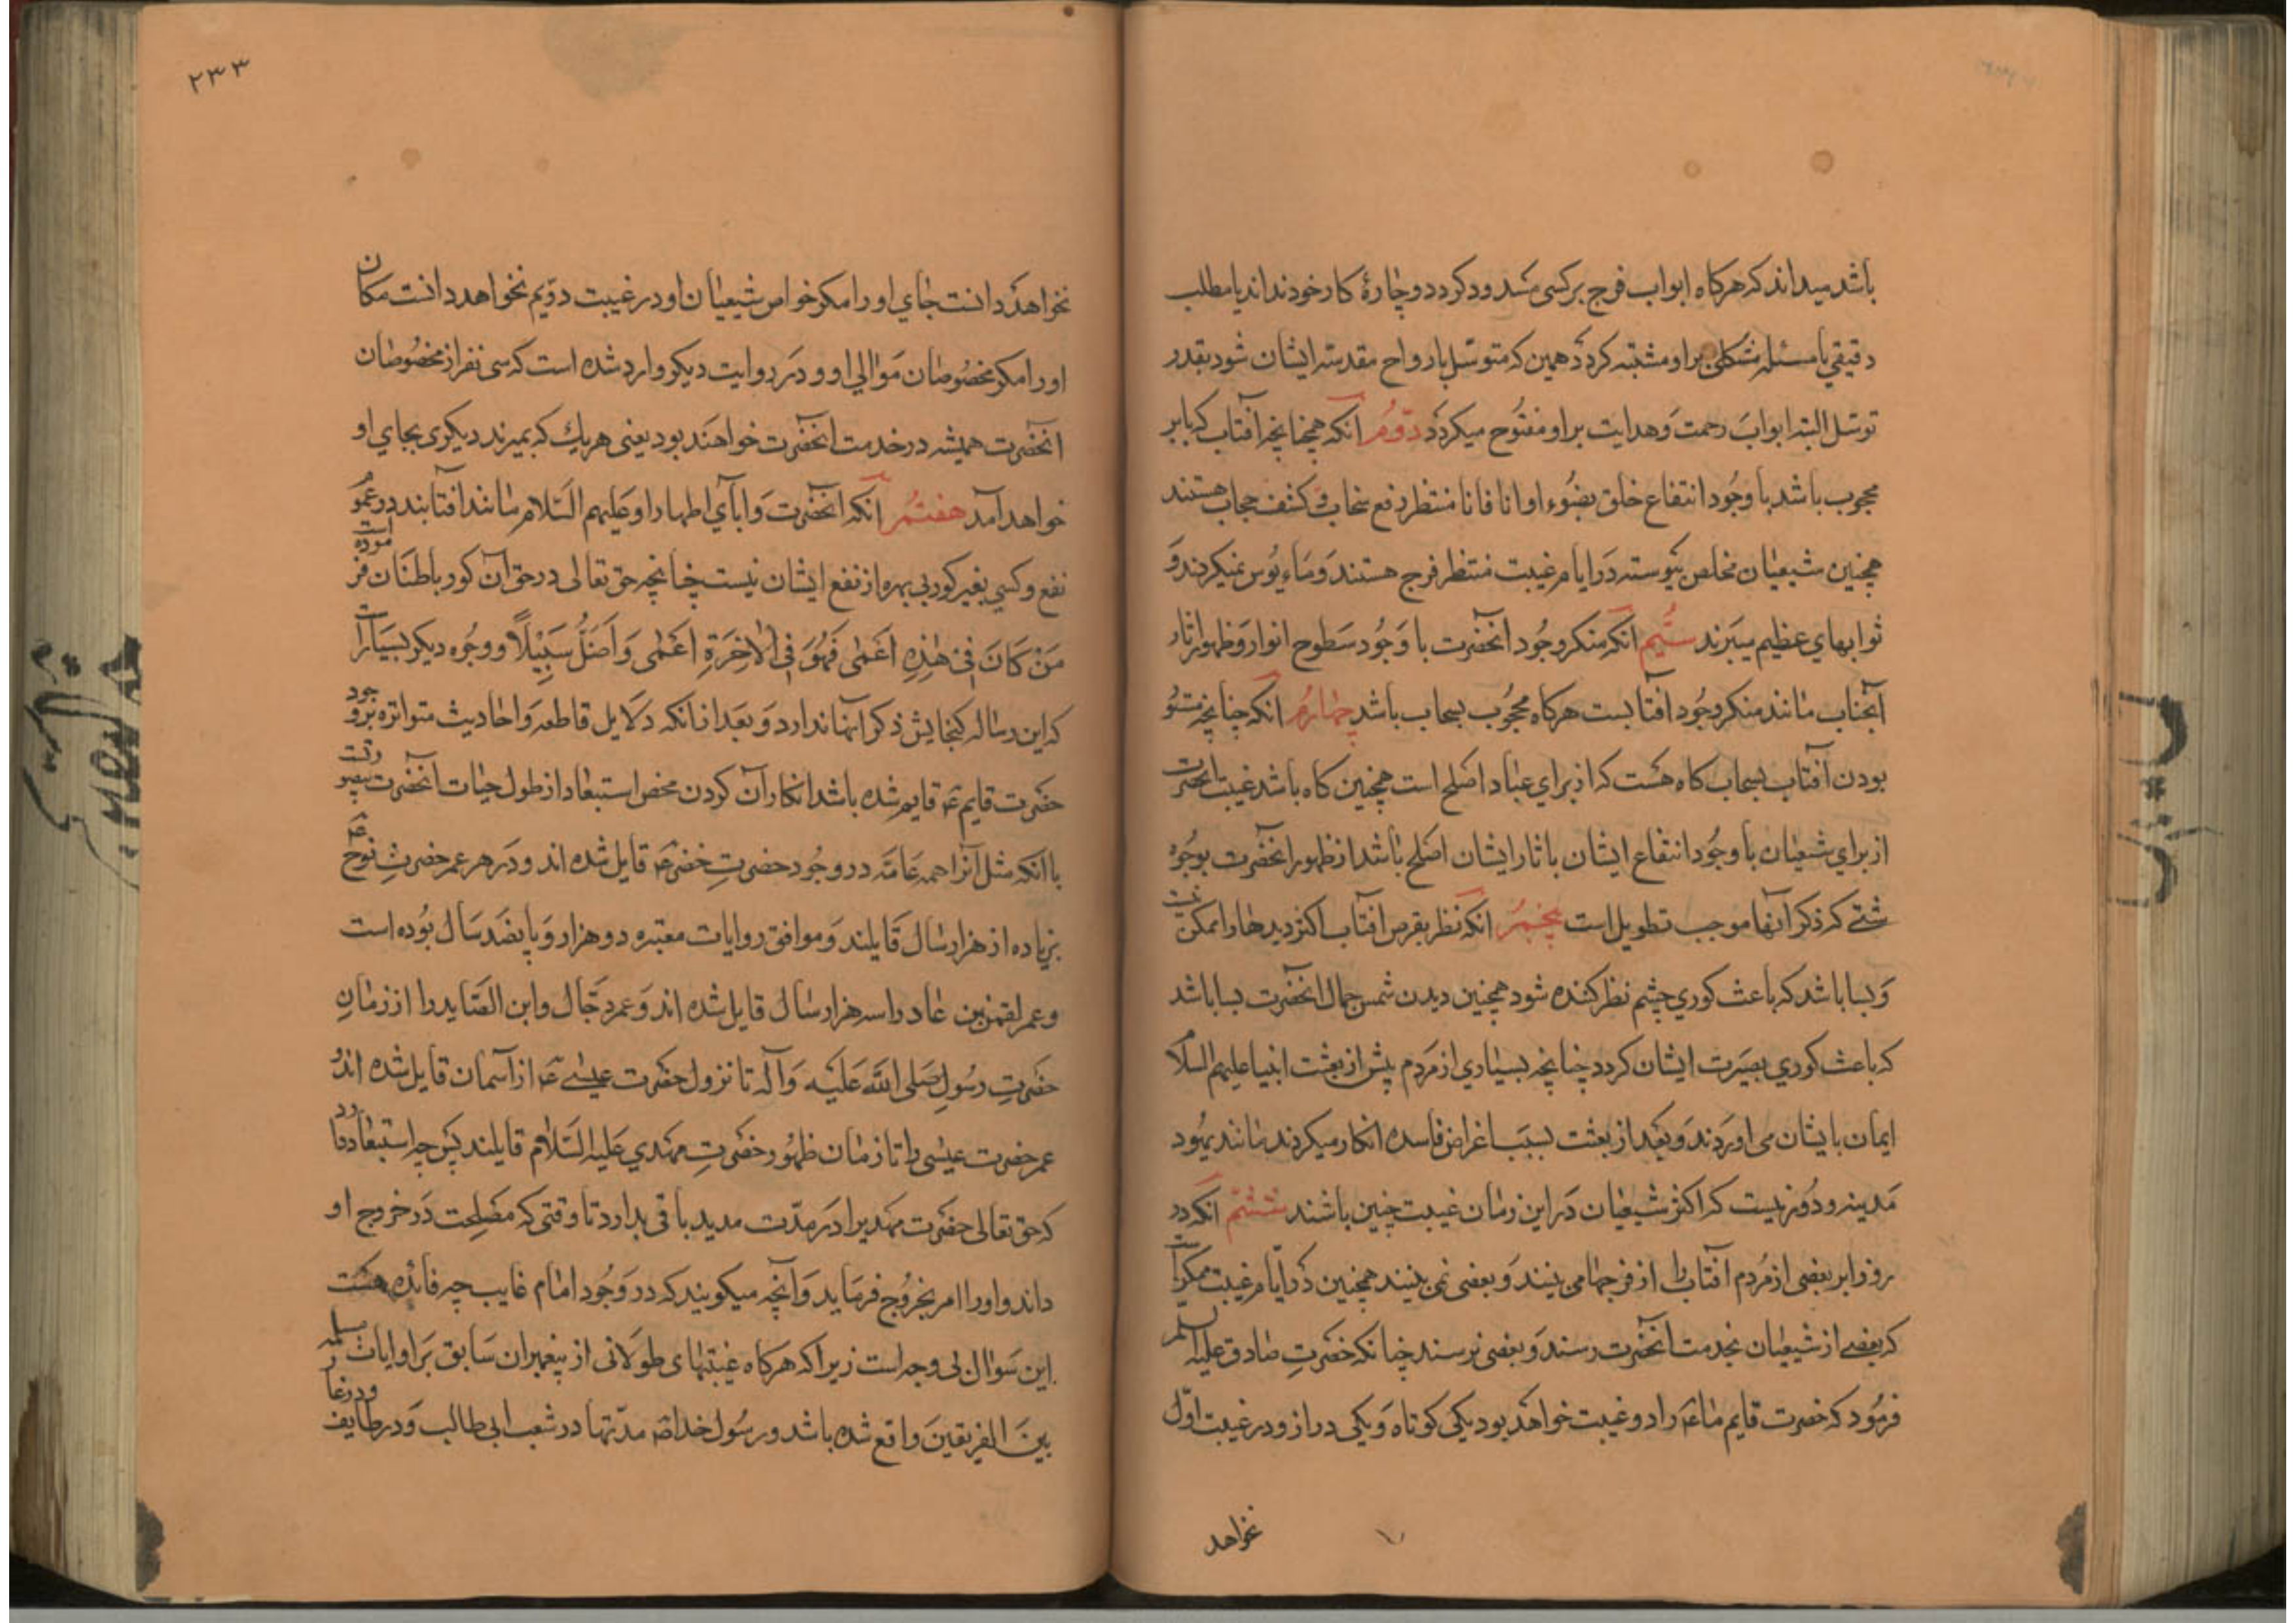 باشد میداند که هرکاه ابواب فرج بر کسی مسدود کردد و چارهٔ کار خود نداند یا مطلب
دقیقی یا مسئله مشکلی بر او مشتبه کردد همین که متوسل بارواح مقدسه ایشان شود بقدر
توسل البته ابواب رحمت و هدایت بر او مفتوح میکردد دوّم آنکه همچنانچه آفتاب که بابر
محجوب باشد با وجود انتفاع خلق بضوء او انا فانا منتظر رفع سحاب و کشف حجاب هستند
همچنین شیعیان مخلص پیوسته در ایام غیبت منتظر فرج هستند و مایوس نمیکردند و
ثوابهای عظیم میبرند سیّم آنکه منکر وجود آنحضرت با وجود سطوح انوار و ظهور اثار
آنجناب مانند منکر وجود افتابست هرکاه محجوب بسحاب باشد چهارم آنکه چنانچه مستو
بودن آفتاب بسحاب کاه هست که از برای عباد اصلح است همچنین کاه باشد غیبت انحضرت
از برای شیعیان با وجود انتفاع ایشان باثار ایشان اصلح باشد از ظهور انحضرت بوجوه
شتّی که ذکر آنها موجب تطویل است پنجم آنکه نظر بقرص افتاب اکثر دیدها را ممکن نیست
و بسا باشد که باعث کوری چشم نظر کننده شود همچنین دیدن شمس جمال انحضرت بسا باشد
که باعث کوری بصیرت ایشان کردد چنانچه بسیاری از مردم پیش از بعثت انبیا علیهم السلام
ایمان بایشان می اوردند و بعد از بعثت بسبب اغراض فاسده انکار میکردند مانند یهود
مدینه و دور نیست که اکثر شیعیان در این زمان غیبت چنین باشند ششم آنکه در
روز ابر بعضی از مردم آفتاب را از فرجها می بینند و بعضی نمی بینند همچنین در ایام غیبت ممکن است
که بعضی از شیعیان بخدمت آنحضرت رسند و بعضی نرسند چنانکه حضرت صادق علیه السلم
فرمود که حضرت قایم ما ع را دو غیبت خواهد بود یکی کوتاه و یکی دراز و در غیبت اوّل
نخواهد
۲۳۳
نخواهد دانست جای او را مکر خواص شیعیان او در غیبت دوّیم نخواهد دانست مکان
او را مکر مخصوصان موالی او و در روایت دیکر وارد شده است که سی نفر از مخصوصان
آنحضرت همیشه در خدمت انحضرت خواهند بود یعنی هر یک که بمیرند دیکری بجای او
خواهد آمد هفتم آنکه انحضرت و ابآی اطهار او علیهم السّلام مانند افتابند در عموم
نفع و کسی بغیر کور بی بهره از نفع ایشان نیست چنانچه حق تعالی در حق آن کور باطنان فرموده است
مَنْ كَانَ فِي هٰذِهِ أَعْمٰى فَهُوَ فِي الْاخِرَةِ اَعْمٰى وَاَضَلُّ سَبِيْلًا و وجوه دیکر بسیار است
که این رساله کنجایش ذکر آنها ندارد و بعد از انکه دلایل قاطعه و احادیث متواتره بر وجود
حضرت قایم ع قایم شده باشد انکار آن کردن محض استبعاد از طول حیات آنحضرت
با انکه مثل آنرا همه عامّه در وجود حضرت خضر ع قایل شده اند و در هر عمر حضرت نوح ع
بزیاده از هزار سال قایلند و موافق روایات معتبره دو هزار و پانصد سال بوده است
و عمر لقمن بن عاد را سه هزار سال قایل شده اند و عمر دجّال و ابن الصّاید را از زمان
حضرت رسول صلی الله علیه و آله تا نزول حضرت عیسی ع از آسمان قایل شده اند و
عمر حضرت عیسی را تا زمان ظهور حضرت مهدی علیه السّلام قایلند پس چه استبعاد دارد
که حق تعالی حضرت مهدیرا در مدّت مدید باقی بدارد تا وقتی که مصلحت در خروج او
داند و او را امر بخروج فرماید و آنچه میکویند که در وجود امام غایب چه فائده هست
این سؤال بی وجه است زیرا که هرکاه غیبتهای طولانی از پیغمبران سابق بر او ایات مسلمه
بین الفریقین واقع شده باشد و رسول خدا ص مدّتها در شعب ابی طالب و در طایف و در غار